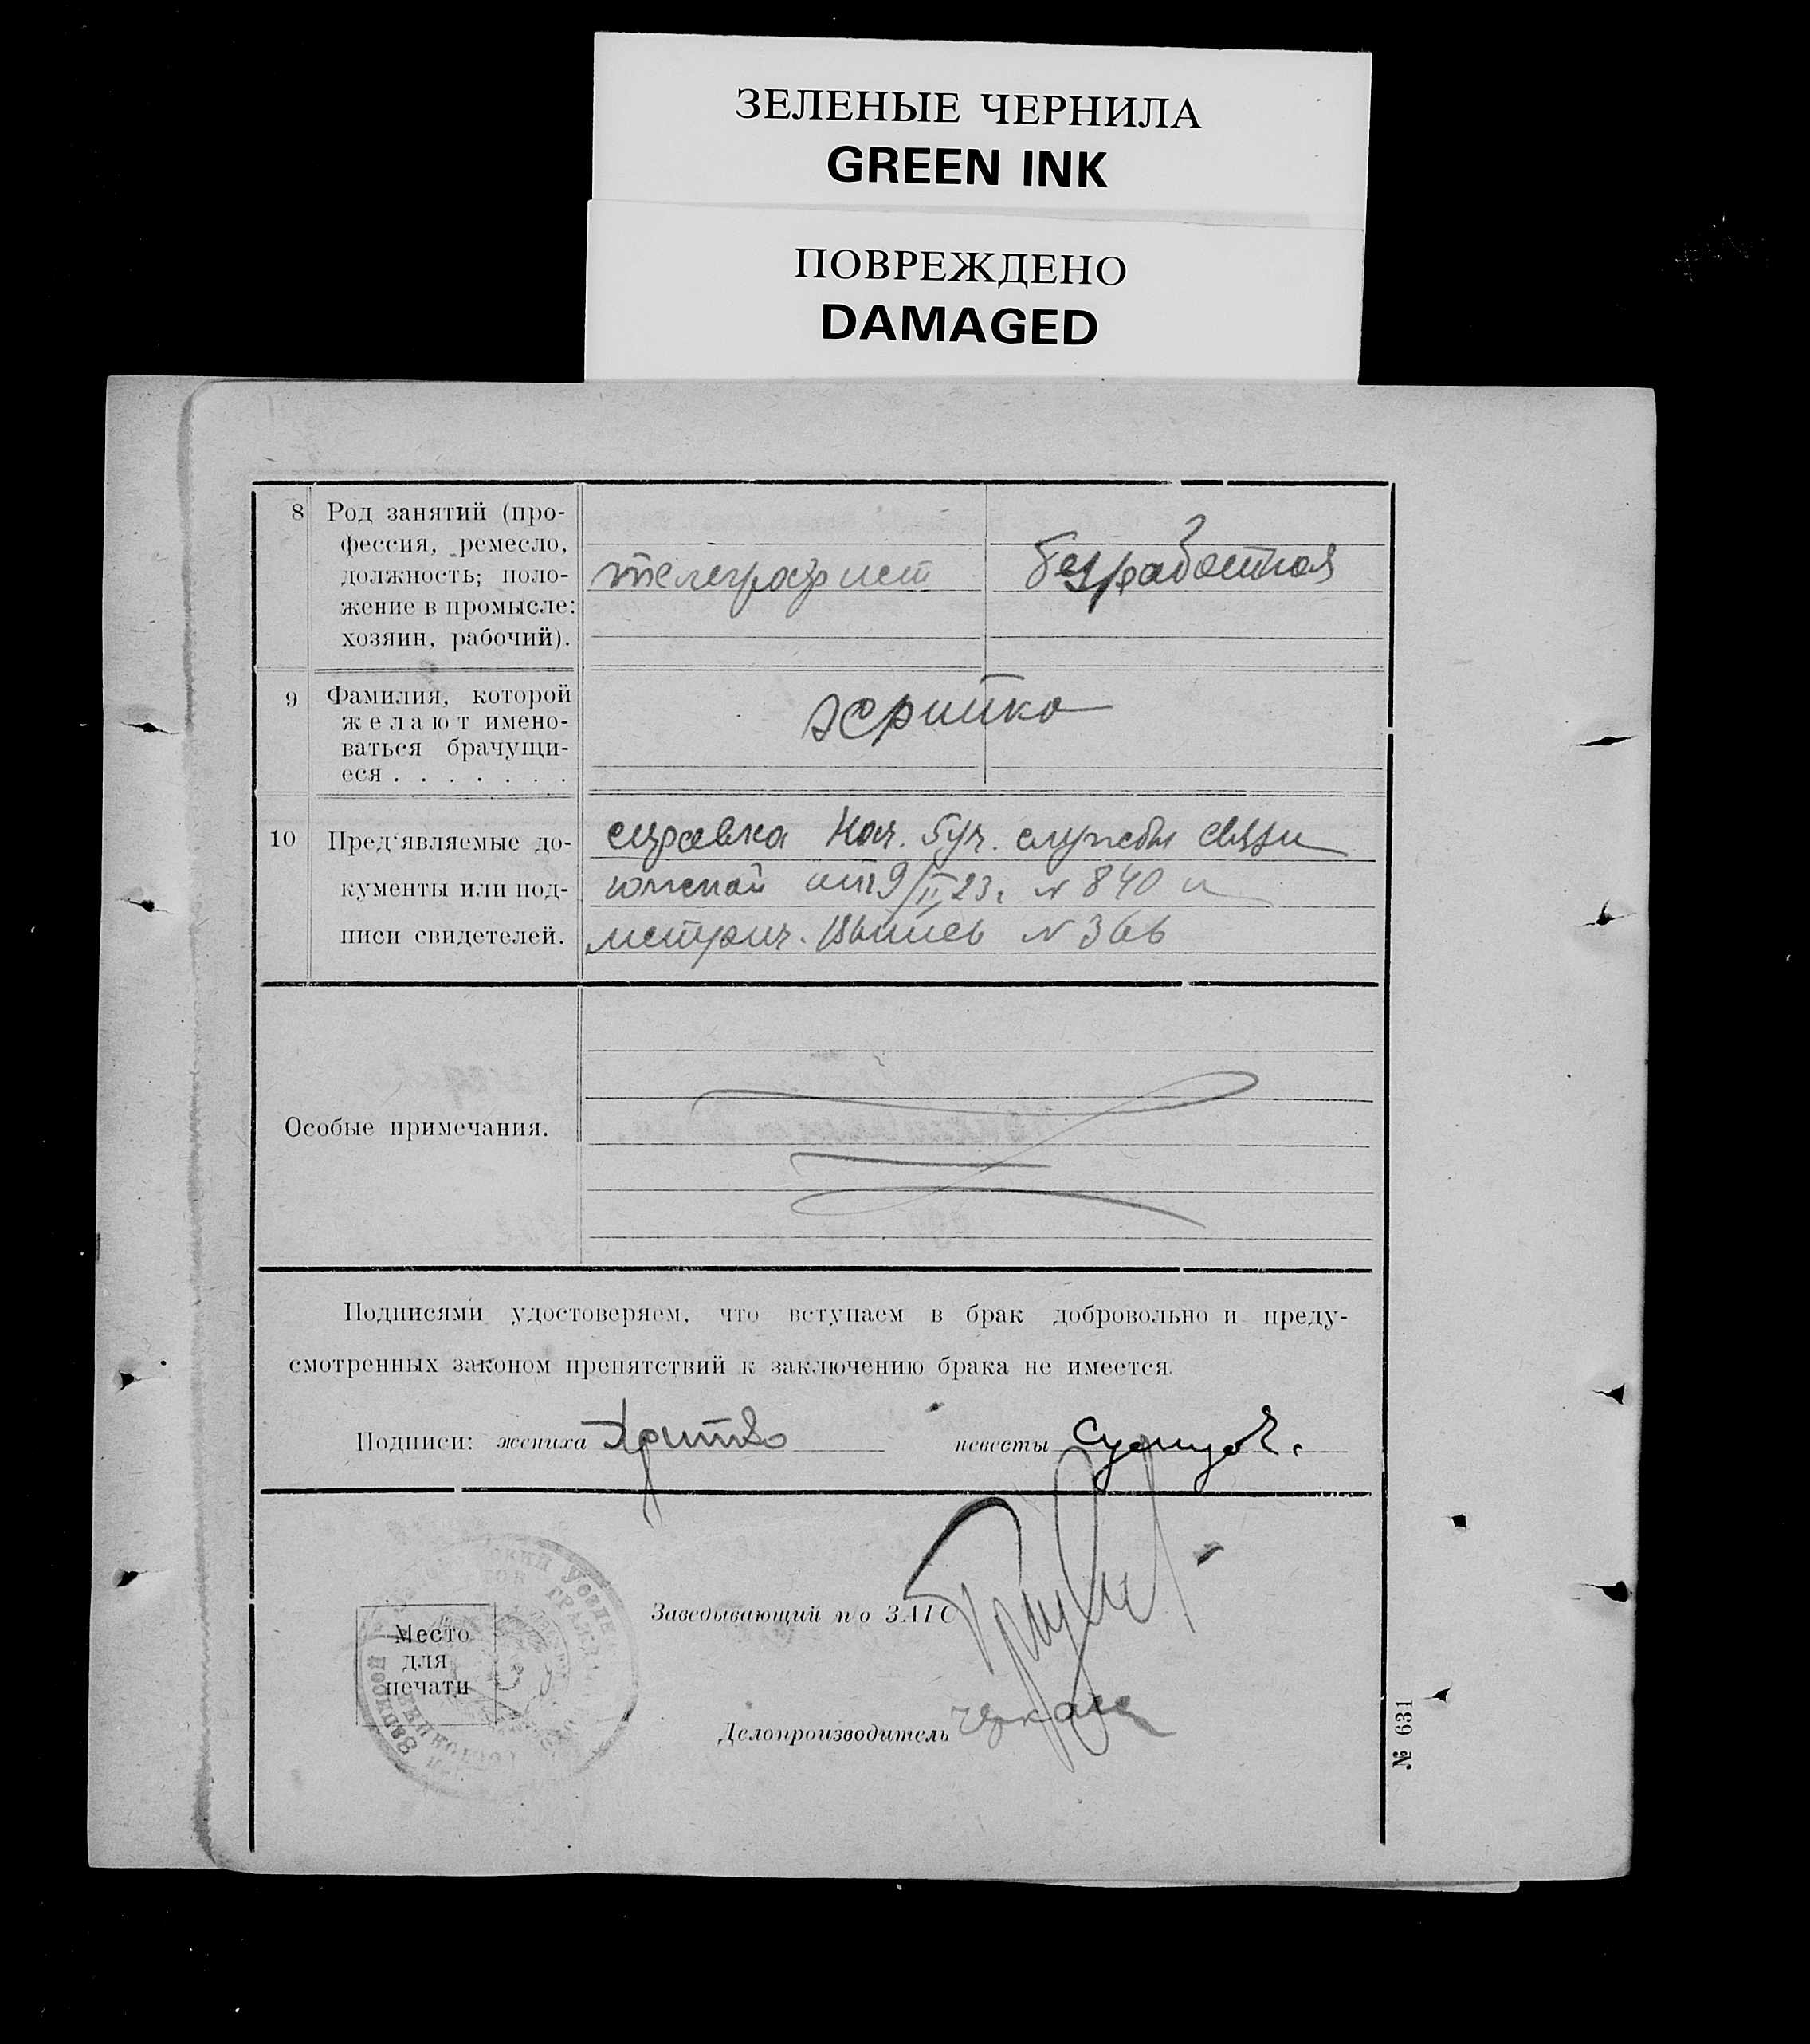 ЗЕЛЕНЫЕ ЧЕРНИЛА
GREEN INK
ПОВРЕЖДЕНО
DAMAGED
8 Род занятий (про-
фессия, ремесло,
должность; поло-
жение в промысле:
хозяин, рабочий).
телеграфист
безработная
9 Фамилия, которой
желают имено-
ваться брачущи-
еся . . . . . . .
10 Пред'являемые до-
кументы или под-
писи свидетелей.
справка Нач. 5 уч. службы связи
южной от 9/II 23г. № 840 и
метрич. выпись № 366
Особые примечания.
Подписями удостоверяем, что вступаем в брак добровольно и преду-
смотренных законом препятствий к заключению брака не имеется.
Подписи: жениха
невесты
Заведывающий по ЗАГС
Место
для
печати
Делопроизводитель
№ 631